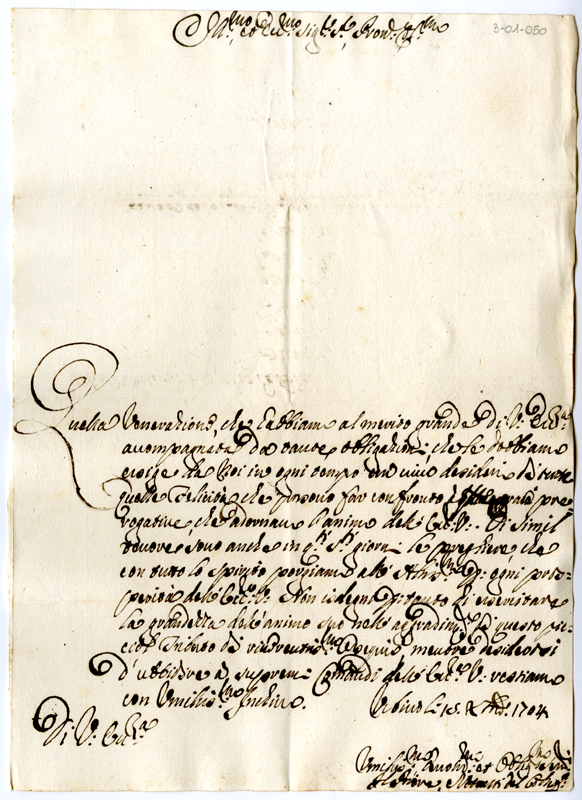 Ill.mo et Ecc.mo Sig.r Sig.r Pron. Col.mo
3-01-050
Quella Venerazione, che habbiamo al merito grande di V. Ecc.za
accompagnata da tante obligationi, che le dobbiamo
esige da Noi in ogni tempo un vivo desiderio di tutte
quelle felicità, che possono far confronto alle gran pre-
rogative, che adornano l'animo dell'Ecc.za V. Di simil
tenore sono anche in q.ti S.ti giorni le preghiere, che
con tutto lo spirito porgiamo all'Altis.mo per ogni pros-
perità dell'Ecc.za V. Non isdegni pertanto di esercitare
la grandezza dell'animo suo nell'aggradim.to di questo pic-
ciol Tributo di riverentis.mo ossequio, mentre desiderosi
d'ubbidire a supremi Comandi dell'Ecc.za V. restiamo
con Umilis.mo Inchino. Li 15. Xbre 1704
Di V. Ecc.za
Umilis.mi Devotis.mi et Oblig.mi